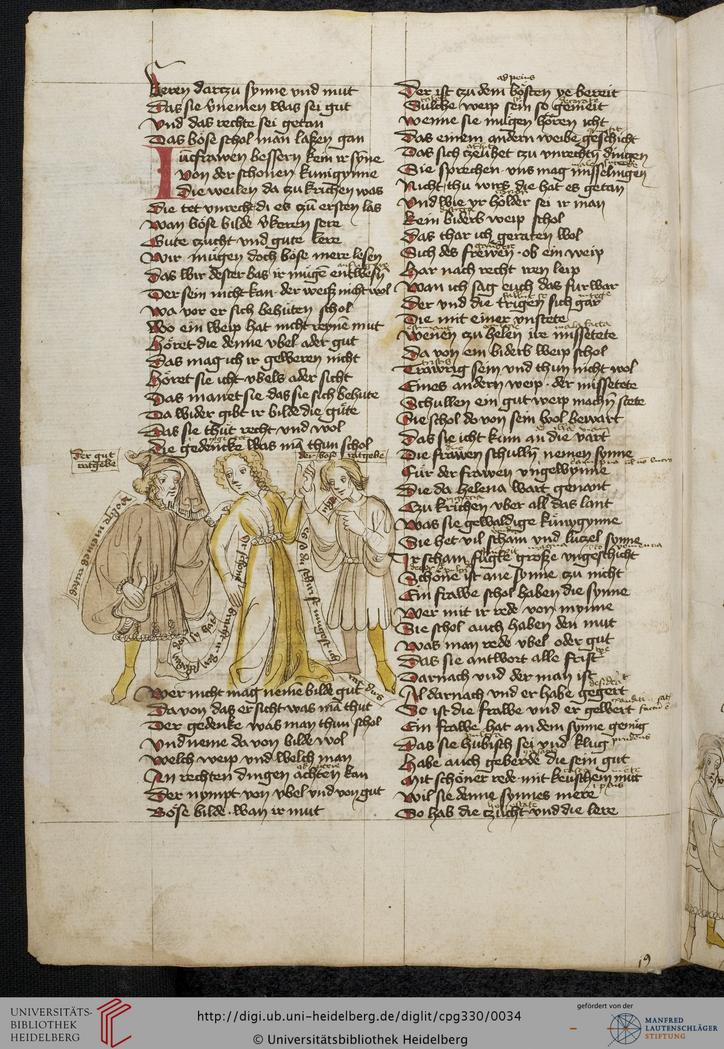 Keren darczu synne vnd mut
Das sie v̄nemen was sei gut
Vnd das rechte sei getan
Das böse schol man laßen gan
Iūcfrawen bessern kein ir syñe
Von der schonen kunigynne
Die weilen da zu krichen was
Die tet vnrecht di es czū ersten las
Wan böse bilde v̄keren sere
Gute czucht vnd gute lere
Wir mügen doch böse mere lesen
Das wir dester bas ir mügē entwesen
Der sein nicht kan der weiß nicht wol
Wa vor er sich behüten schol
Wo ein weip hat nicht reynen mut
Höret die denne vbel ader gut
Das mag ich ir geweren nicht
Höret sie icht vbels ader sicht
Das manet sie das sie sich behute
Da wider gibt ir bilde die güte
Das sie thut recht vnd wol
Die gedencke was mā thun schol
der gut
ratgebe
der böse ratgebe
Wer nicht mag nemē bilde gut
Da von das er sicht was mā thut
Der gedenke was man thun schol
Vnd neme da von bilde wol
Welch weip vnd welch man
An rechten dingen achten kan
Der nympt von vbel vnd von gut
Böse bilde wan ir mut
ad peius
Der ist czu dem bösten ye bereit
Sulche weip sein so gemeit
Wenne sie mügen hören icht
Das einem andern weibe geschicht
Das sich czeuhet czu vnrechtn dingen
Sie sprechen vns mag misselingen
Nicht thu wirs die hat es getan
Vnd wie yr holder sei ir man
Kein biderb weip schol
Das thar ich geraten wol
Sich des frewen ob ein weip
Hat nach recht iren leip
Wan ich sag euch das furwar
Der vnd die trigen sich gar
Die mit einer vnstete
Wenen czu helen ire missetete
Da von ein biderb weip schol
Trawrig sein vnd thun nicht wol
Eines andern weip der missetete
Schullen ein gut weip machn̄ stete
Sie schol do von sein wol bewart
Das sie icht kum an die vart
Die frawen schulln̄ nemen synne
Für der frawen vngewynne
Die da helena wart genant
Czu krichen vber all das lant
Was sie gewaldige künygynne
Sie het vil scham vnd luczel synne
Ir scham fugte große vngeschicht
Schöne ist ane synne czu nicht
Ein frawe schol haben die synne
Wer mit ir rede von mynne
Sie schol auch haben den mut
Was man rede vbel oder gut
Das sie antwort alle frist
Darnach vnd der man ist
Al darnach vnd er habe gegert
So ist die frawe vnd er gewert
Ein frawe hat an dem synne genug
Das sie hübisch sei vnd klug
Habe auch geberde die sein gut
Mit schöner rede mit keuschem mut
Wil sie denne synnes mere
So hab die czucht vnd die lere
19
UNIVERSITÄTS-
BIBLIOTHEK
HEIDELBERG
http://digi.ub.uni-heidelberg.de/diglit/cpg330/0034
© Universitätsbibliothek Heidelberg
gefördert von der
MANFRED
LAUTENSCHLÄGER
STIFTUNG